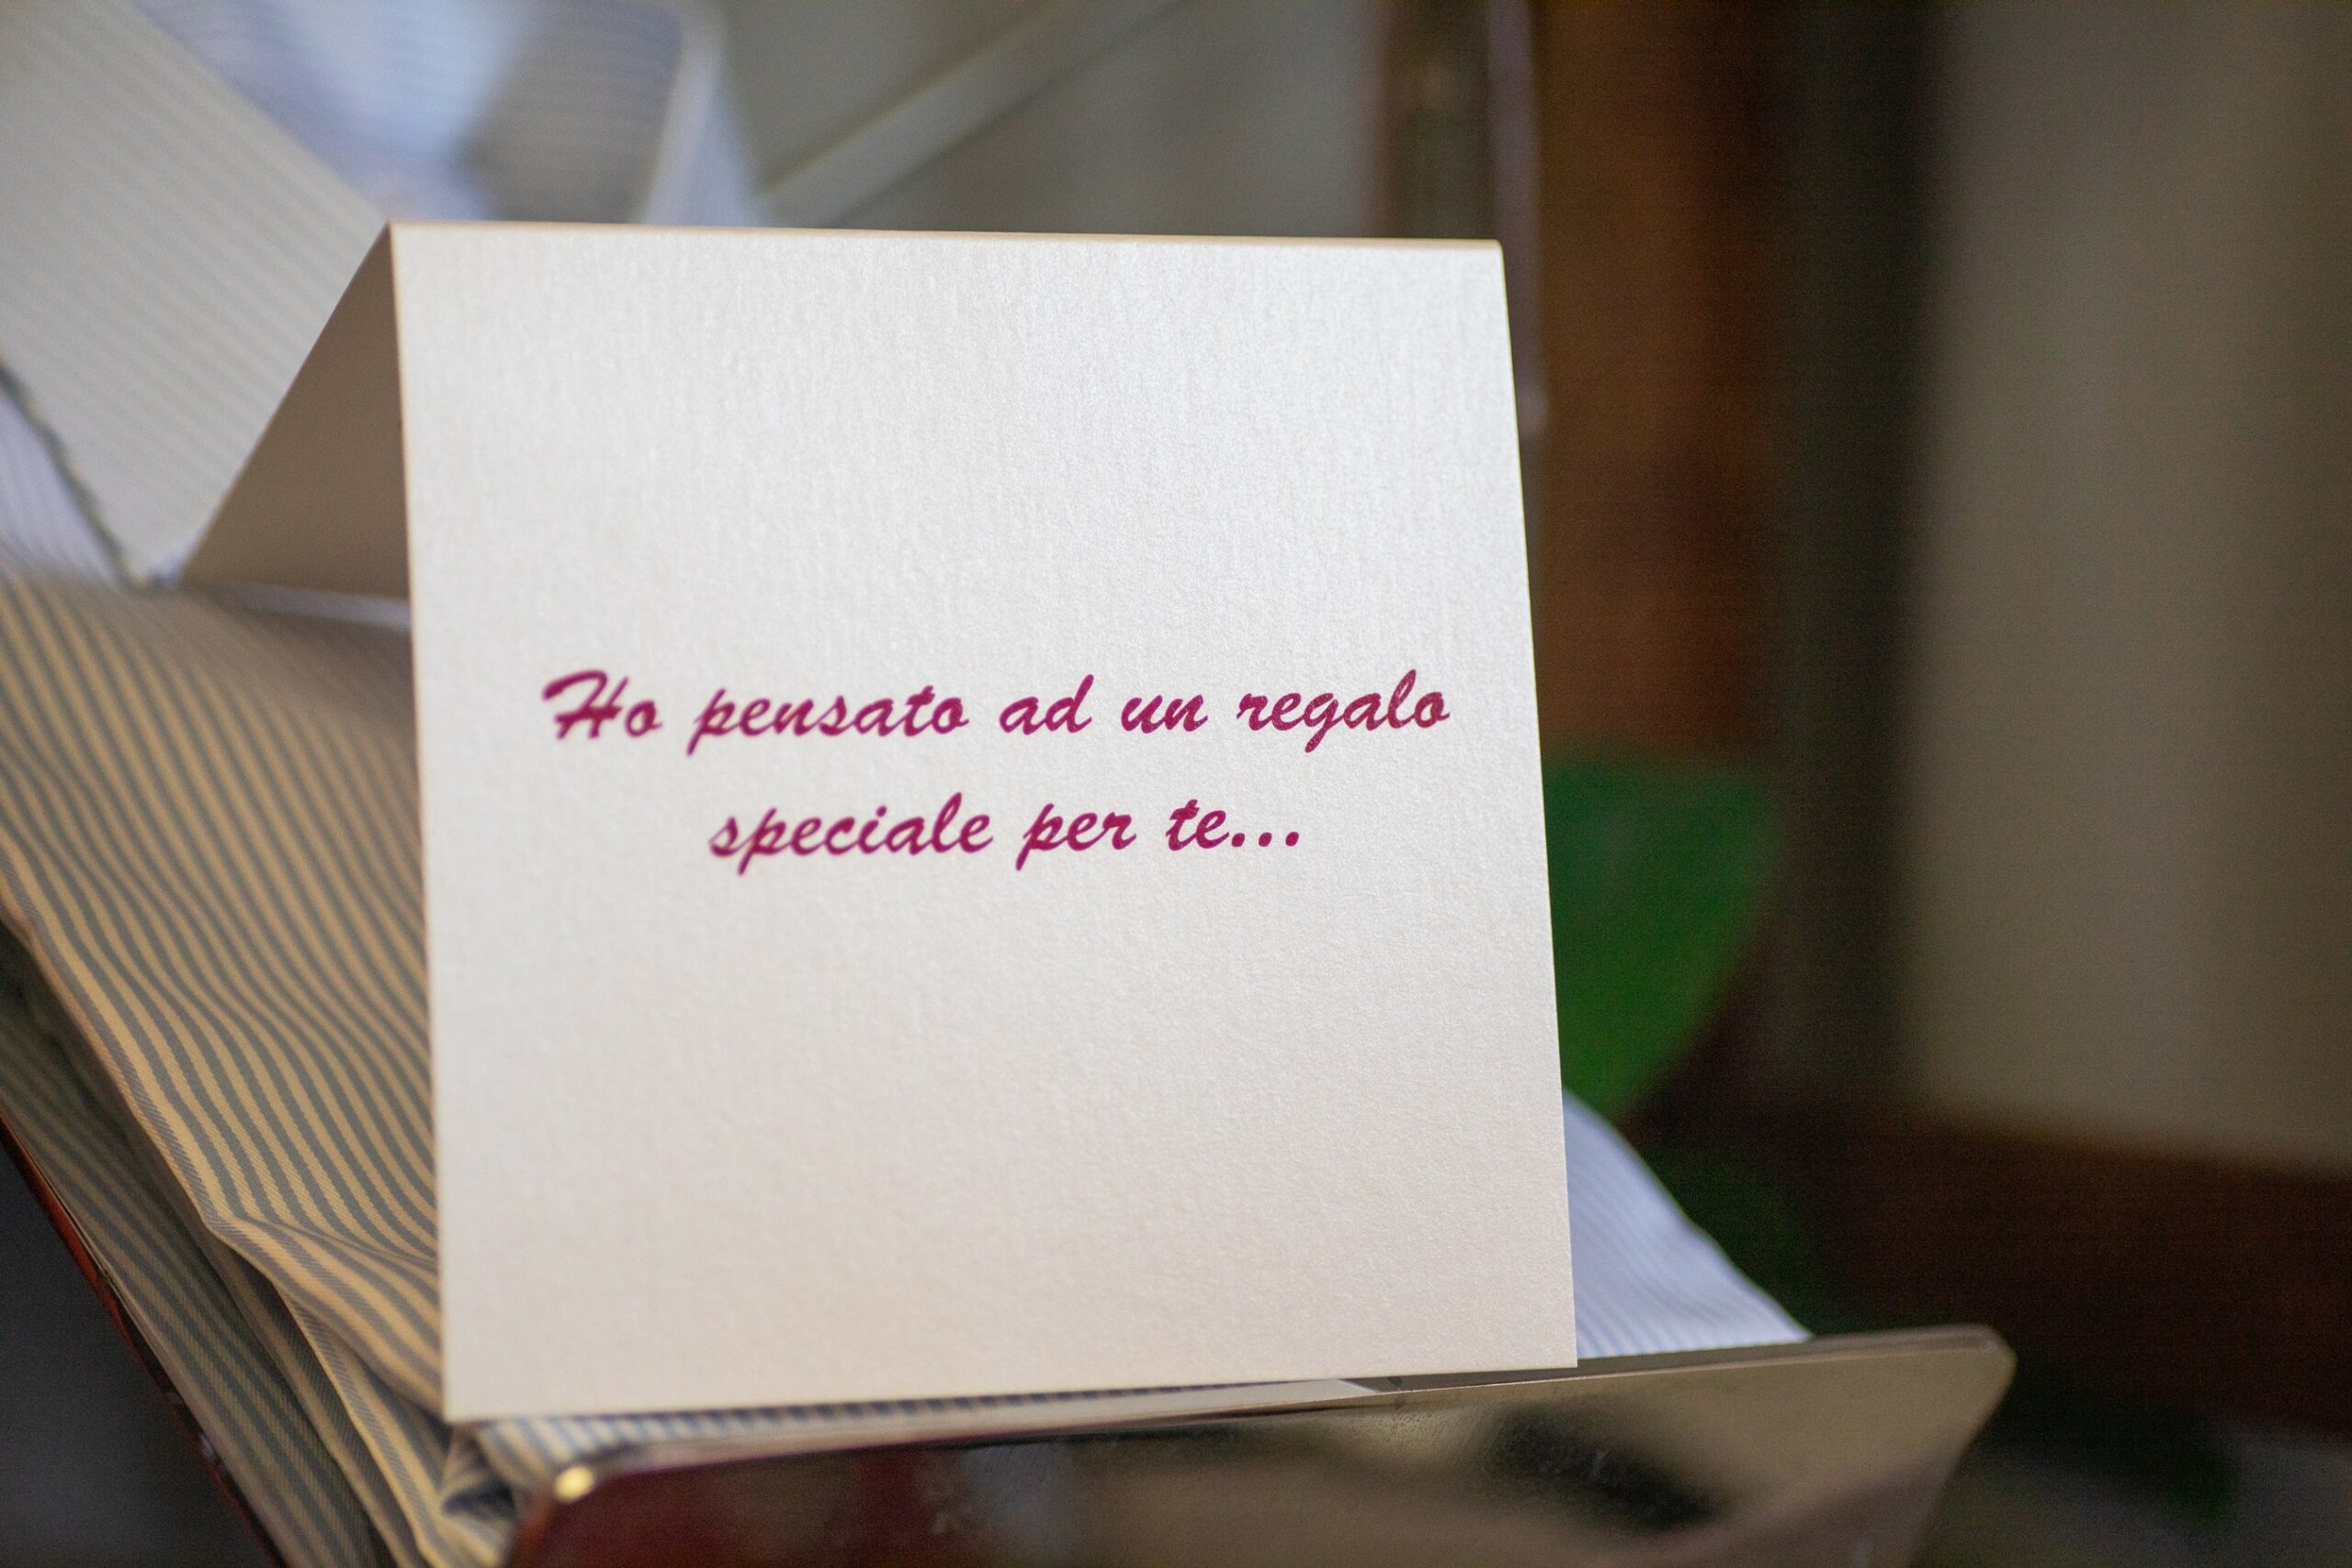 Ho pensato ad un regalo
speciale per te...